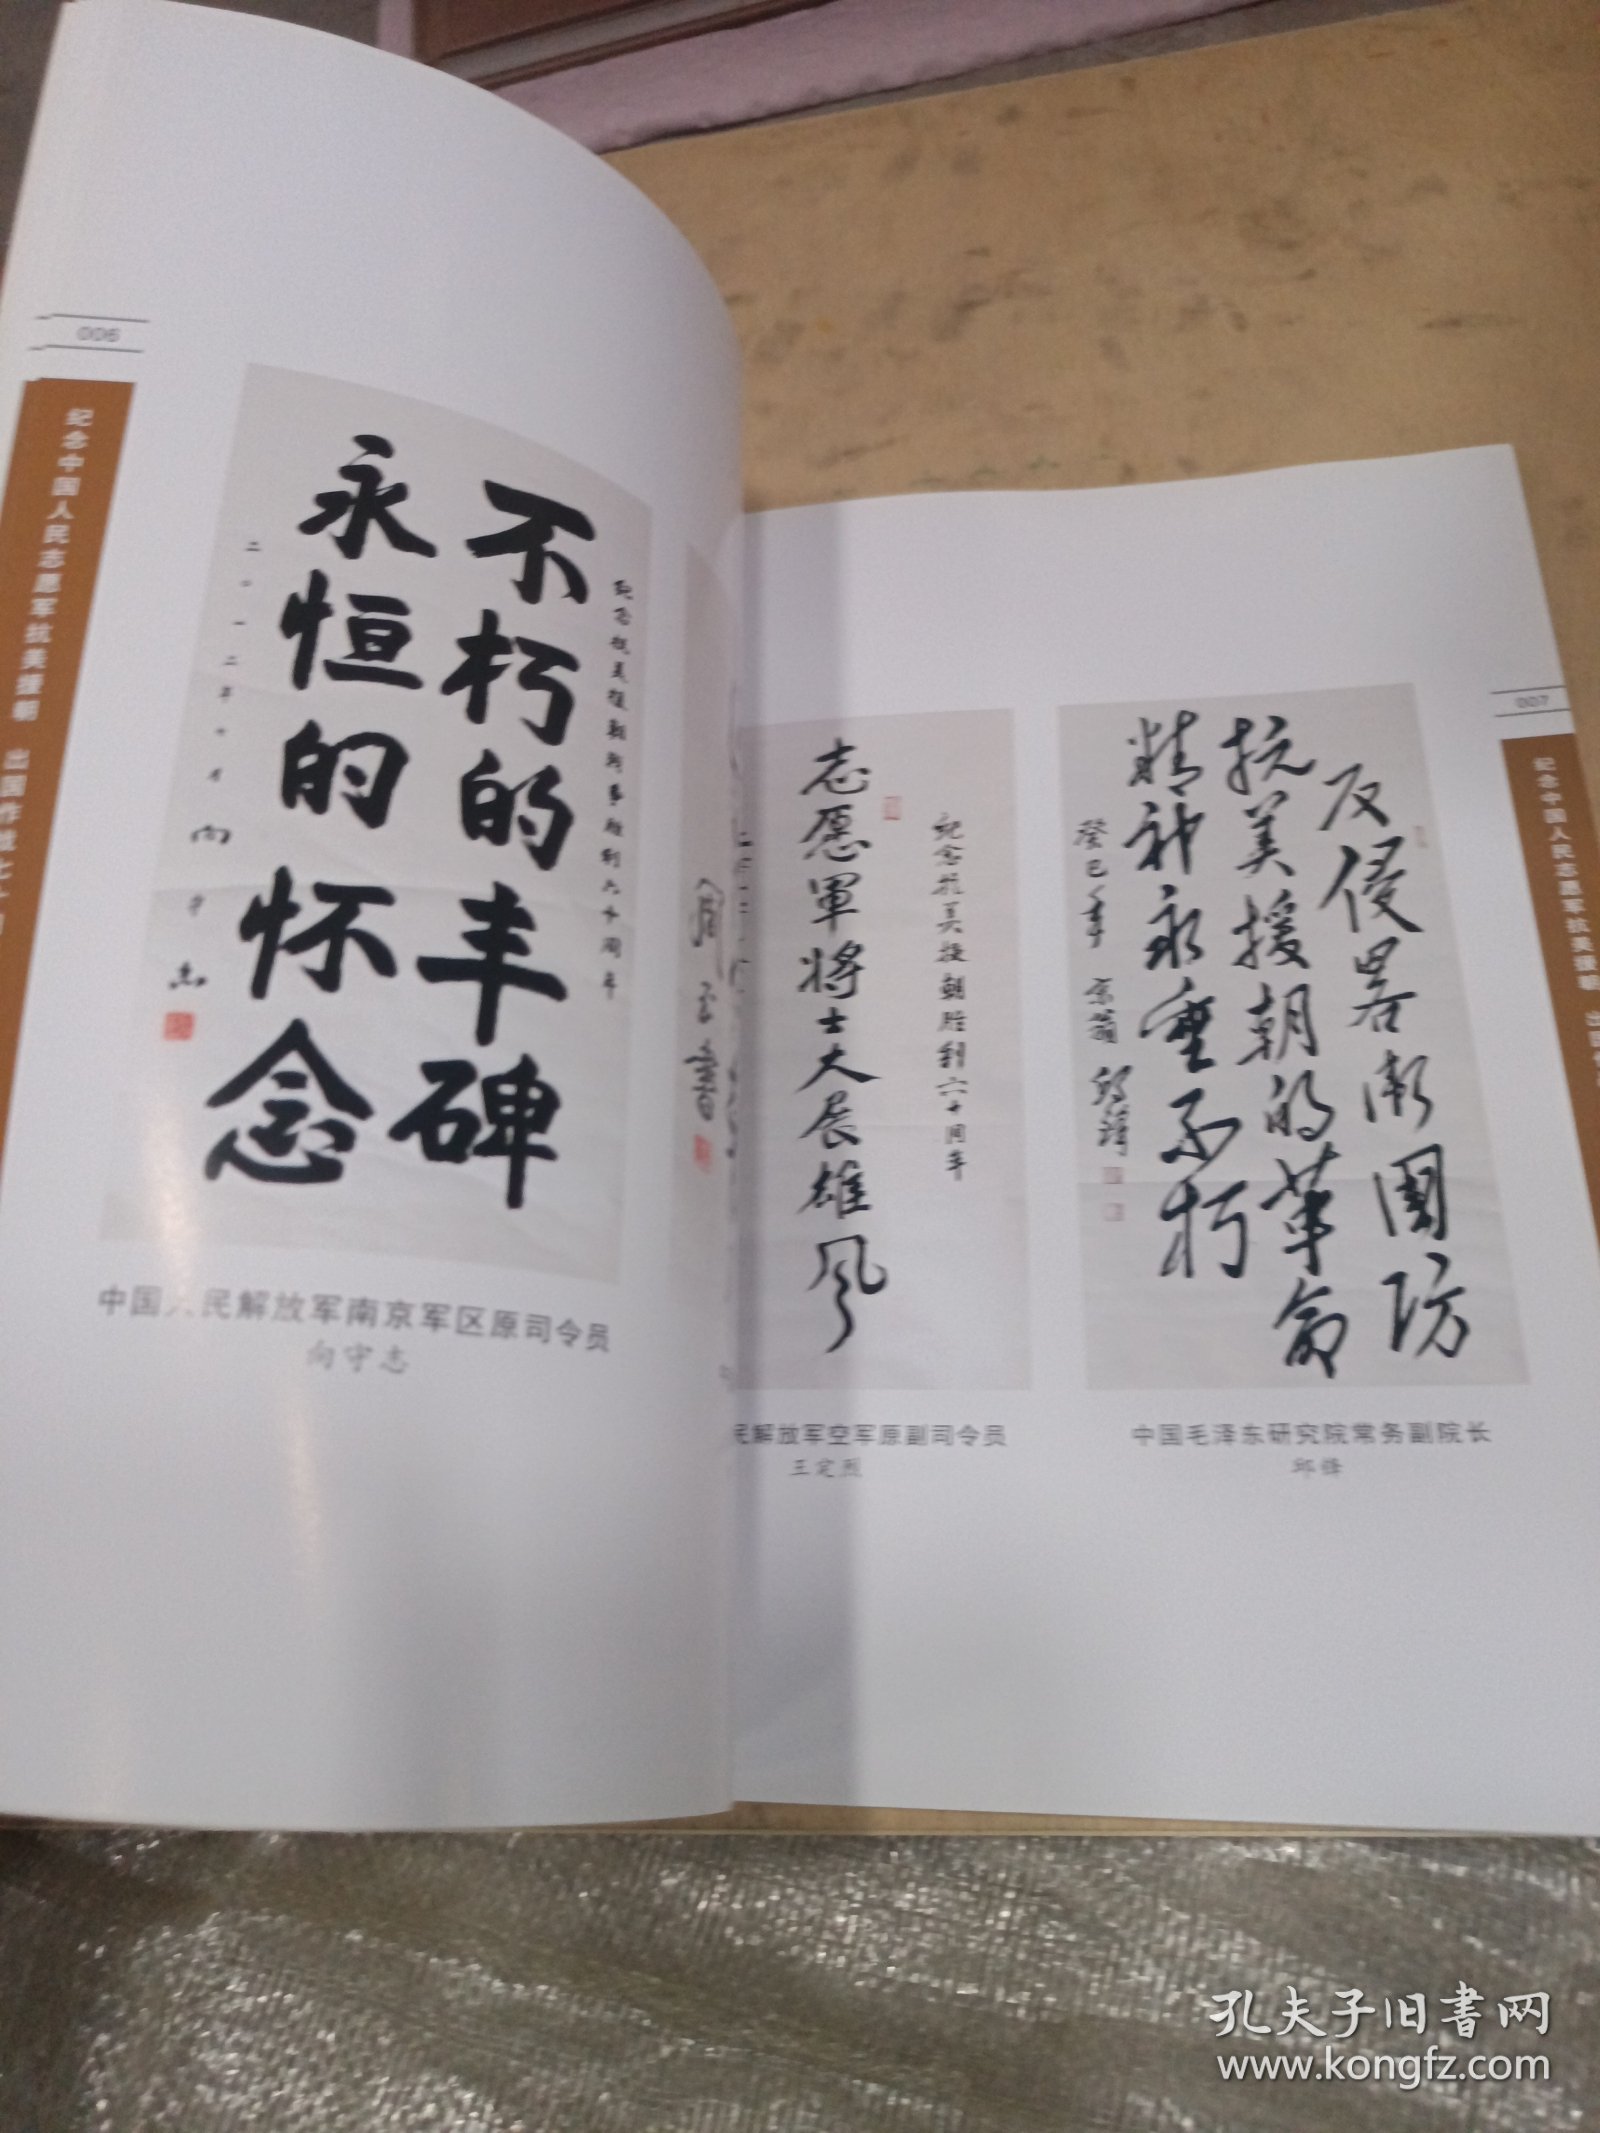 006
纪念中国人民志愿军抗美援朝 出国作战七十周
纪念抗美援朝战争胜利六十周年
不朽的丰碑
永恒的怀念
二〇一二年十月 向守志
中国人民解放军南京军区原司令员
向守志
纪念抗美援朝胜利六十周年
志愿軍将士大展雄风
民解放军空军原副司令员
王定烈
反侵畧衛国防
抗美援朝的革命
精神永垂不朽
癸巳年 京翁 邱锋
中国毛泽东研究院常务副院长
邱锋
007
纪念中国人民志愿军抗美援朝 出国作
孔夫子旧書网
www.kongfz.com